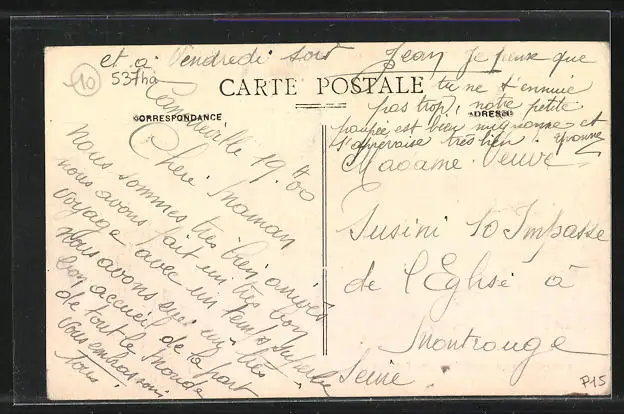 et à Vendredi soir Jean
10
537ha
CARTE POSTALE
CORRESPONDANCE
ADRESSE
19.00
Chère Maman
nous sommes très bien arrivés
nous avons fait un très bon
voyage avec un temps superbe
nous avons eu un très
bon accueil de la part
de tout le monde
vous embrassons
tous.
Je pense que
tu ne t'ennuie
pas trop, notre petite
poupée est bien mignonne et
s'apprivoise très bien. Yvonne
Madame Veuve
Susini 10 Impasse
de l'Eglise à
Montrouge
Seine
P15